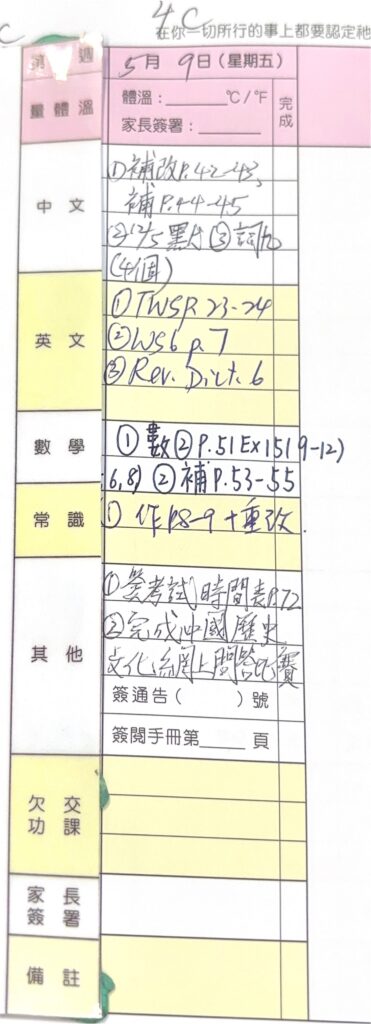 4C
在你一切所行的事上都要認定祂
週
5月 9日(星期五)
量體溫
體溫:______°C/°F
家長簽署:______
完成
中文
①補改P.42-43,
補P.44-45
(4個)
英文
①TWSP. 23-24
②WS6 p.7
③Rev. Dict. 6
數學
① 數② P.51 EX15( 9-12)
6,8) ② 補 P.53-55
常識
① 作P.8-9 + 重改.
其他
①簽考試時間表P.72
②完成中國歷史
文化網上問答比賽
簽通告( )號
簽閱手冊第____頁
欠交功課
家長簽署
備註